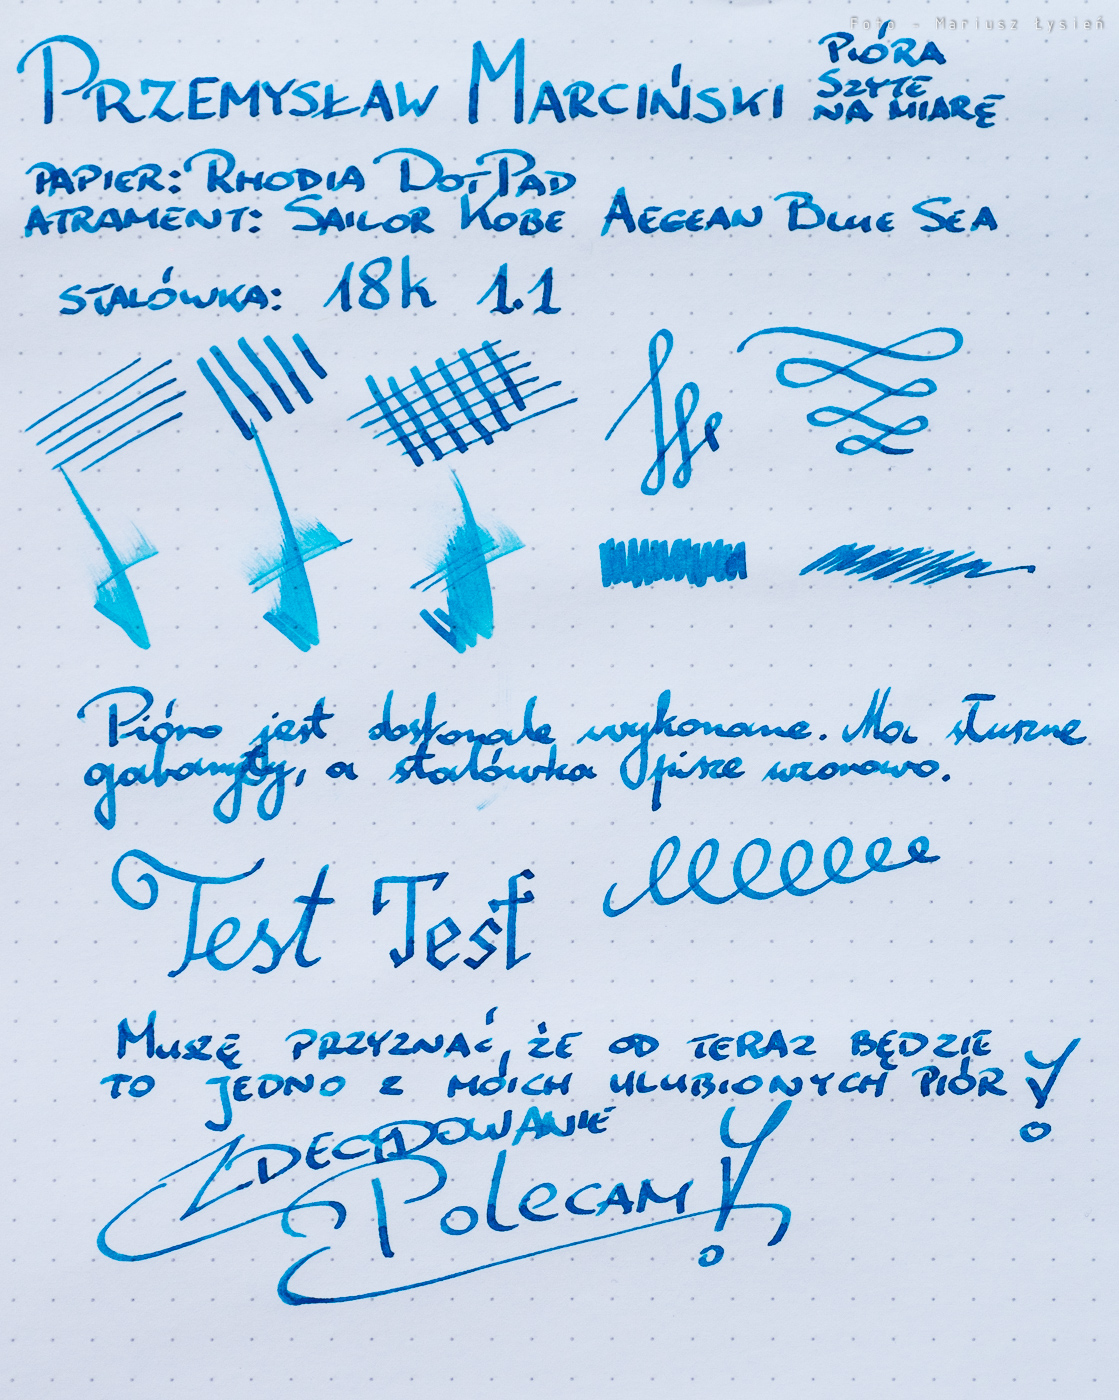 Foto - Mariusz Łysień
PRZEMYSŁAW MARCIŃSKI
PIÓRA
SZYTE
NA MIARĘ
PAPIER: RHODIA DOTPAD
ATRAMENT: SAILOR KOBE AEGEAN BLUE SEA
STALÓWKA: 18k 1.1
Pióro jest doskonale wykonane. Ma słuszne
gabaryty, a stalówka pisze wzorowo.
Test Test
MUSZĘ PRZYZNAĆ, ŻE OD TERAZ BĘDZIE
TO JEDNO Z MOICH ULUBIONYCH PIÓR!
ZDECYDOWANIE
POLECAM!